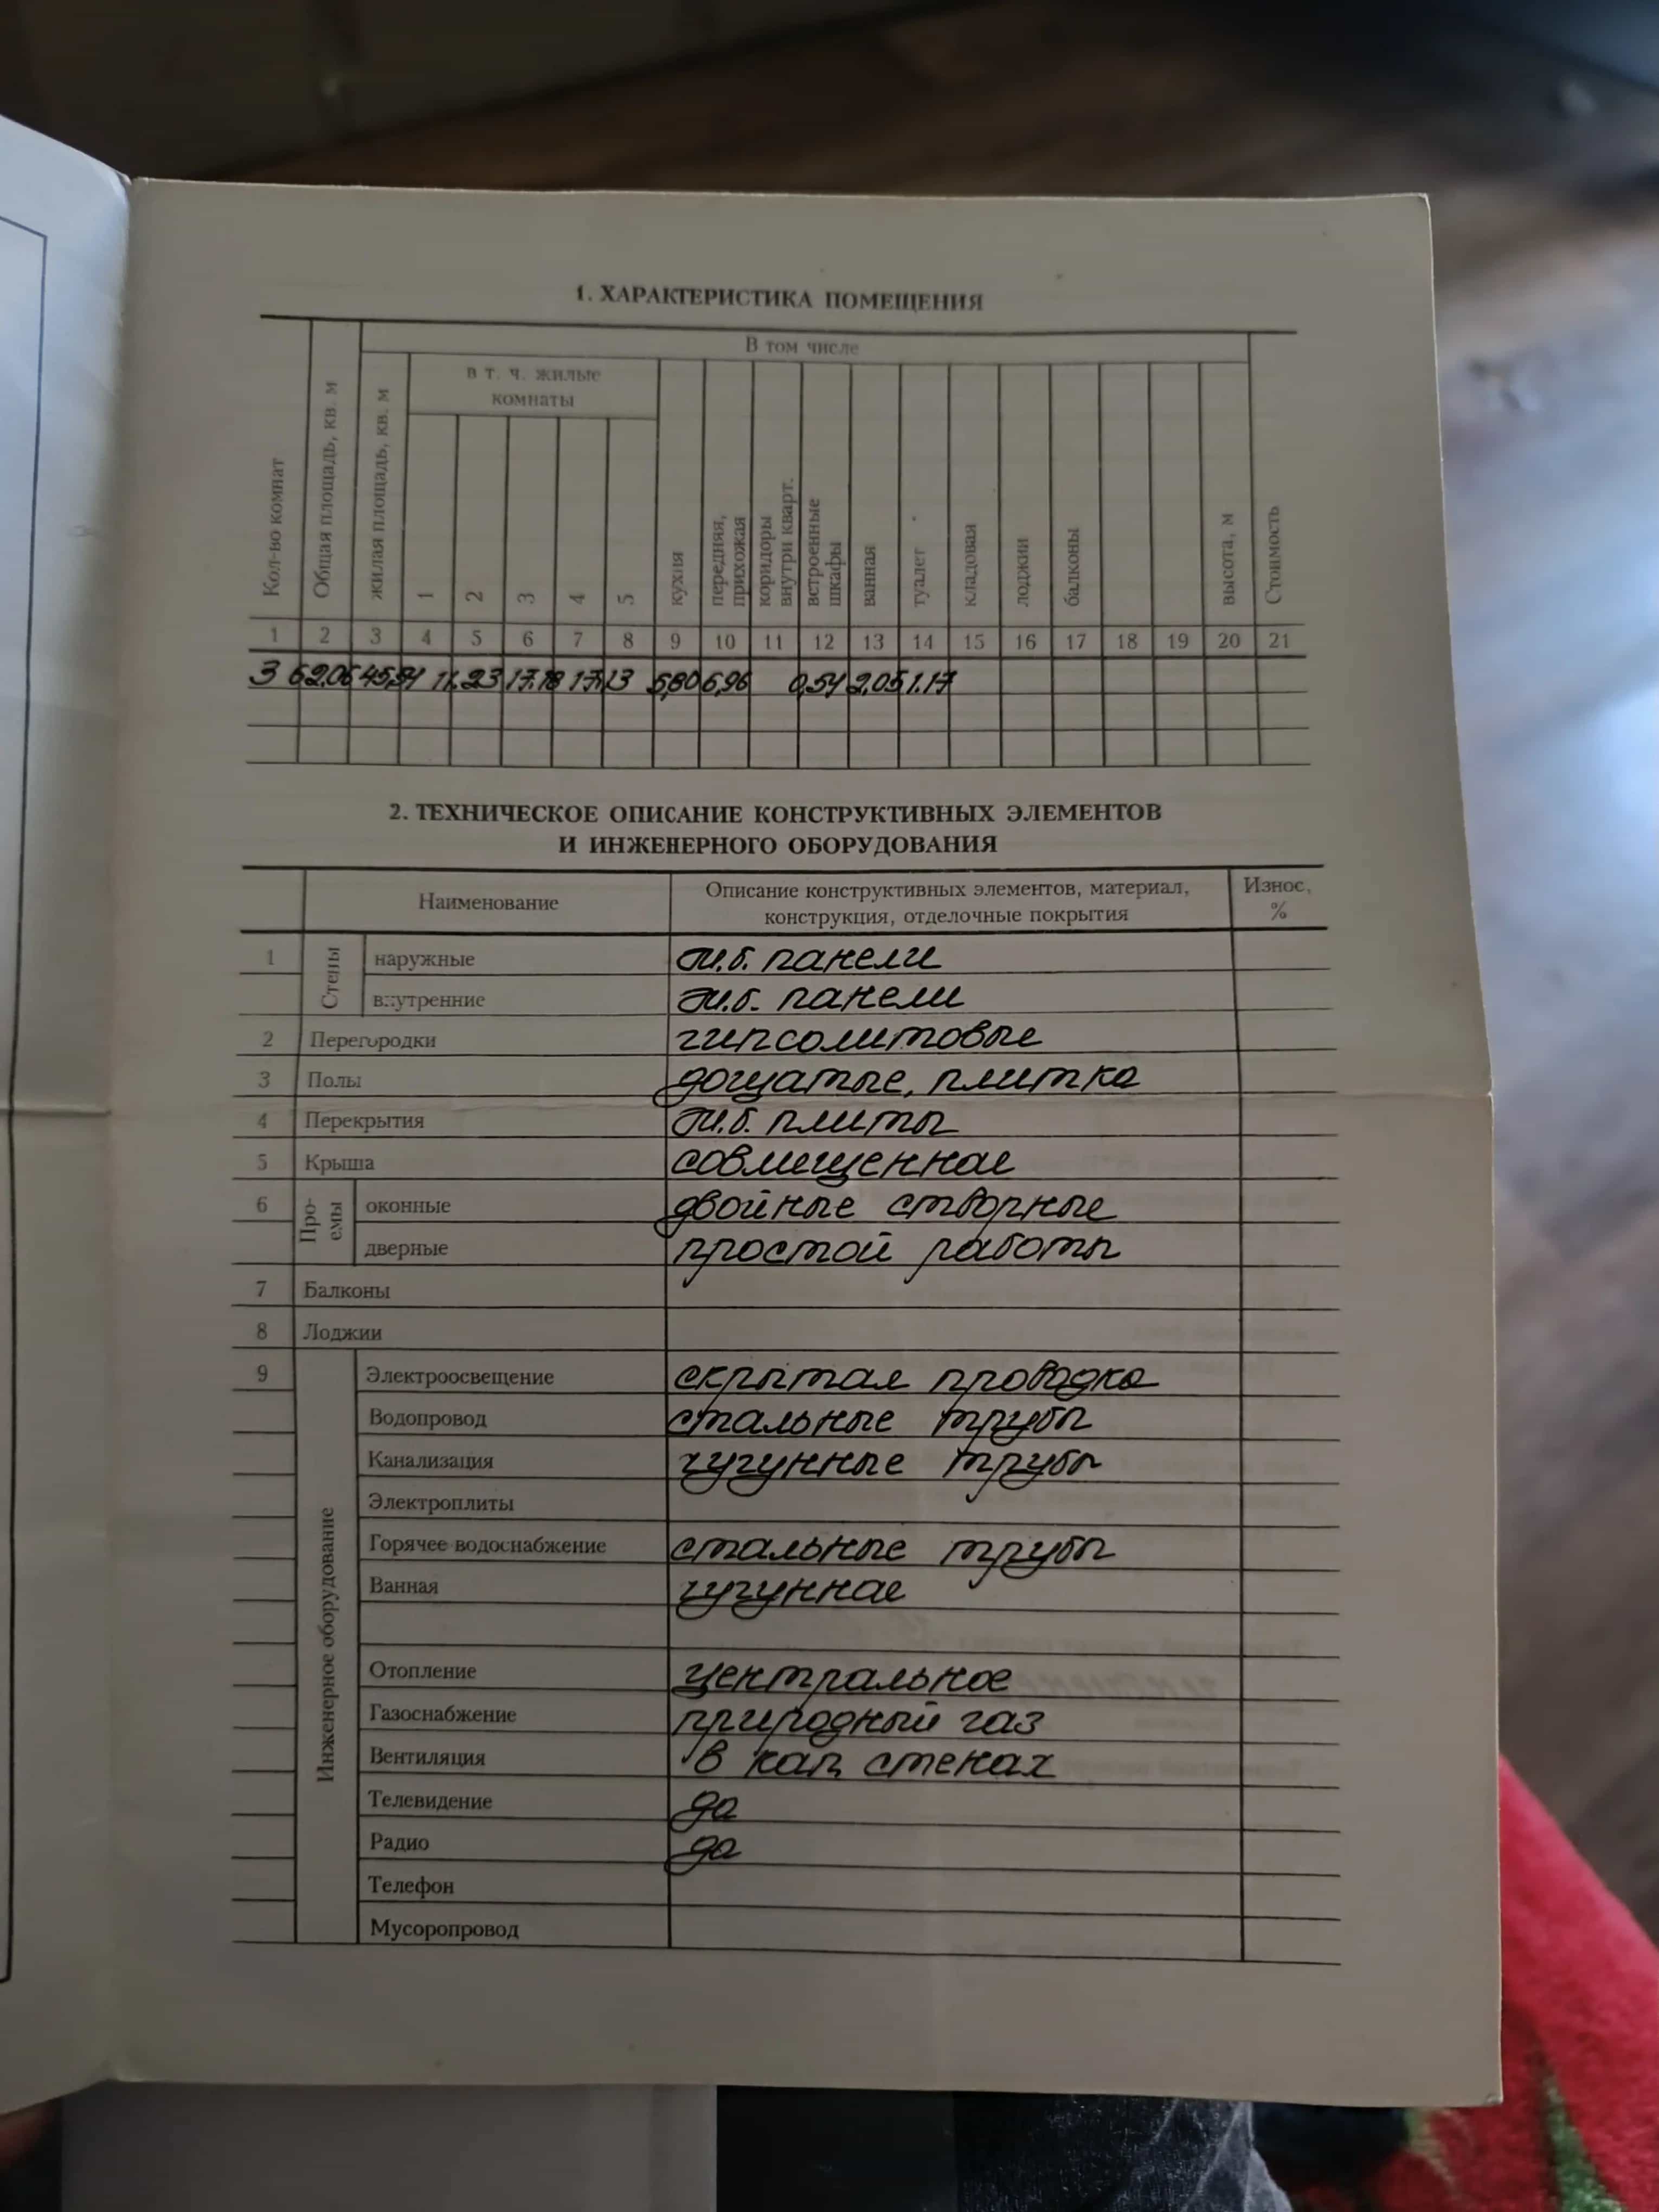 1. ХАРАКТЕРИСТИКА ПОМЕЩЕНИЯ
В том числе
в т. ч. жилые
комнаты
Кол-во комнат
Общая площадь, кв. м
жилая площадь, кв. м
1 2 3 4 5
кухня
передняя,
прихожая
коридоры
внутри кварт.
встроенные
шкафы
ванная
туалет
кладовая
лоджии
балконы
высота, м
Стоимость
1 2 3 4 5 6 7 8 9 10 11 12 13 14 15 16 17 18 19 20 21
3 62,06 45,54 11,23 17,18 17,13 5,80 6,96 0,54 2,05 1,17
2. ТЕХНИЧЕСКОЕ ОПИСАНИЕ КОНСТРУКТИВНЫХ ЭЛЕМЕНТОВ
И ИНЖЕНЕРНОГО ОБОРУДОВАНИЯ
Наименование
Описание конструктивных элементов, материал,
конструкция, отделочные покрытия
Износ,
%
1 Стены наружные ж.б. панели
внутренние ж.б. панели
2 Перегородки гипсолитовые
3 Полы дощатые, плитка
4 Перекрытия ж.б. плиты
5 Крыша совмещенная
6 Про-
емы
оконные двойные створные
дверные простой работы
7 Балконы
8 Лоджии
9 Инженерное оборудование
Электроосвещение скрытая проводка
Водопровод стальные трубы
Канализация чугунные трубы
Электроплиты
Горячее водоснабжение стальные трубы
Ванная чугунная
Отопление центральное
Газоснабжение природный газ
Вентиляция в кап. стенах
Телевидение да
Радио да
Телефон
Мусоропровод